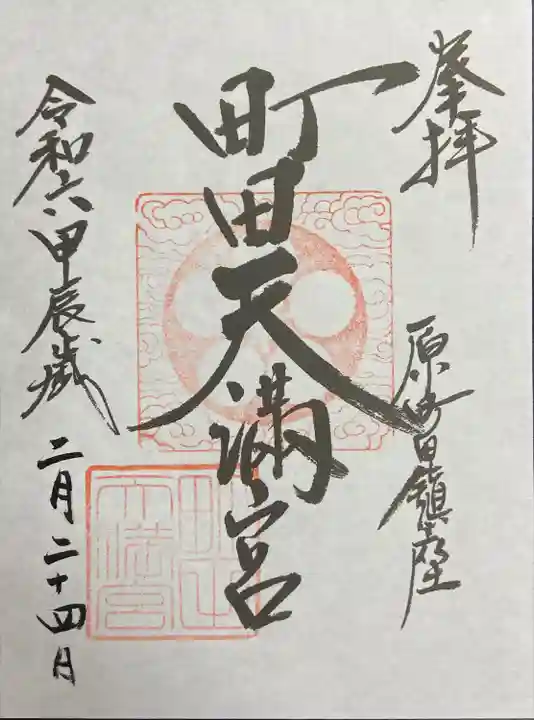 奉拝
原町田鎮座
町田天満宮
令和六甲辰歳 二月二十四日
町田天満宮